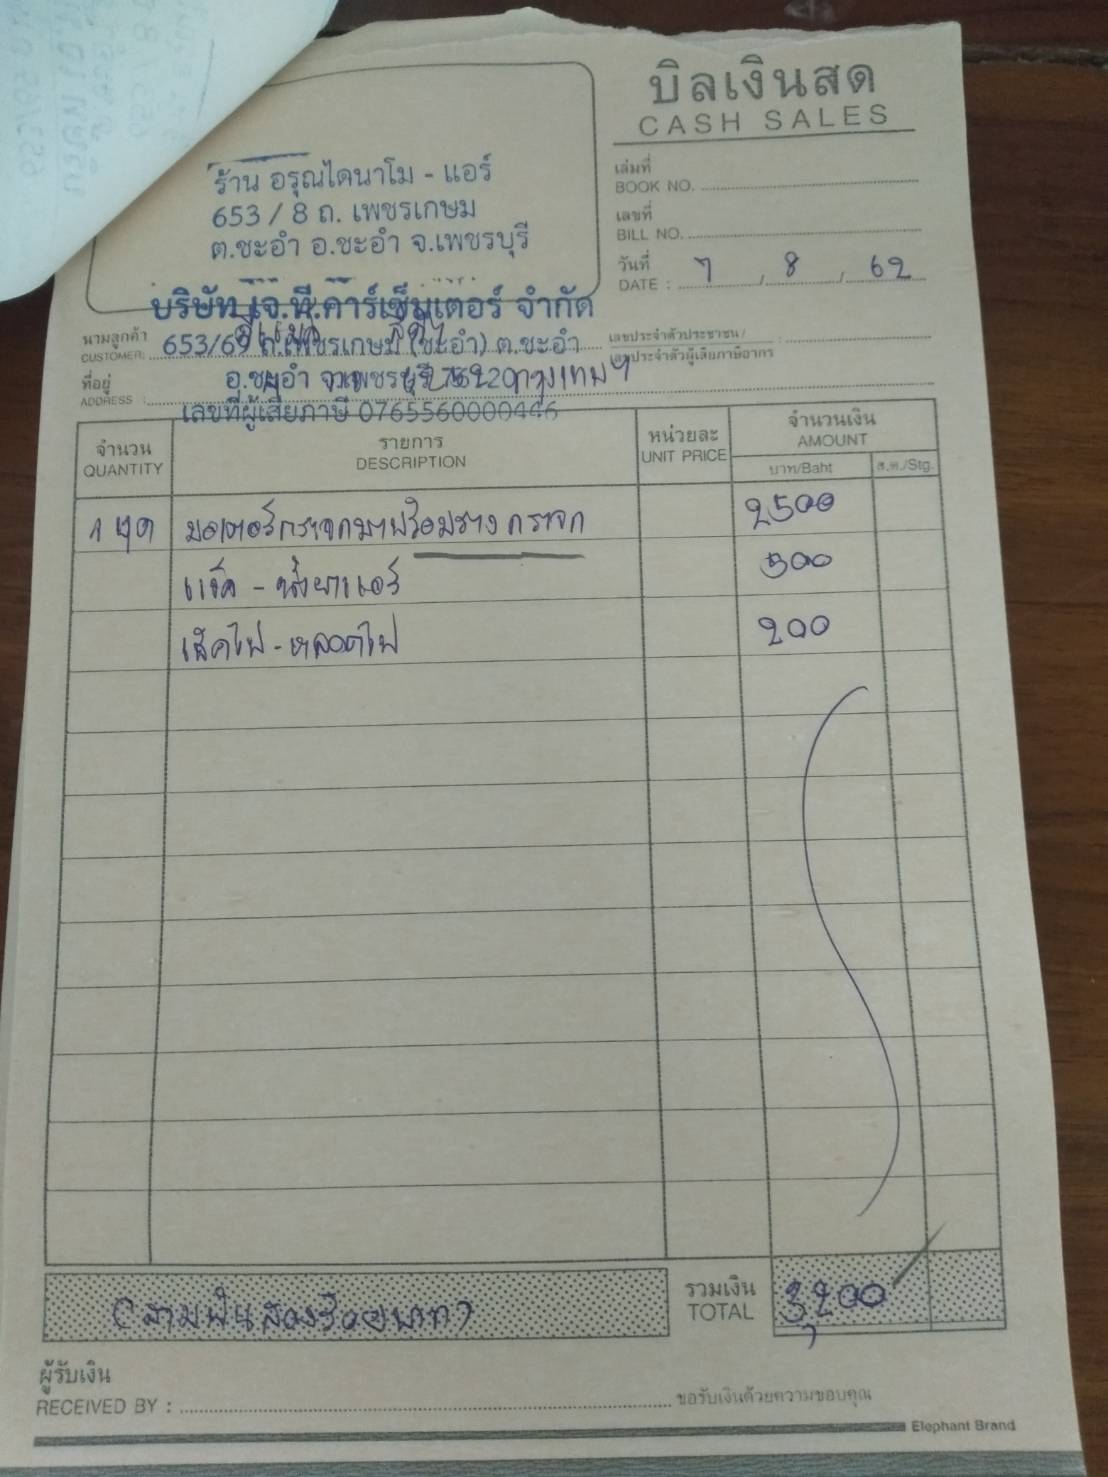 บิลเงินสด
CASH SALES
ร้าน อรุณไดนาโม - แอร์
653 / 8 ถ. เพชรเกษม
ต.ชะอำ อ.ชะอำ จ.เพชรบุรี
เล่มที่
BOOK NO.
เลขที่
BILL NO.
วันที่ 7 , 8 , 62
DATE :
บริษัท เจ.ที.คาร์เซ็นเตอร์ จำกัด
นามลูกค้า
CUSTOMER:
653/69 ถ.เพชรเกษม (ชะอำ) ต.ชะอำ
เลขประจำตัวประชาชน/
เลขประจำตัวผู้เสียภาษีอากร
ที่อยู่
ADDRESS :
อ.ชะอำ จ.เพชรบุรี กรุงเทพฯ
เลขที่ผู้เสียภาษี 0765560000446
จำนวน
QUANTITY
รายการ
DESCRIPTION
หน่วยละ
UNIT PRICE
จำนวนเงิน
AMOUNT
บาท/Baht
ส.ต./Stg.
1 ชุด มอเตอร์กระจกมาพร้อมราง กระจก 2500
เช็ค - น้ำยาแอร์ 500
เช็คไฟ - หลอดไฟ 200
(สามพันสองร้อยบาท)
รวมเงิน
TOTAL
3,200
ผู้รับเงิน
RECEIVED BY :
ขอรับเงินด้วยความขอบคุณ
Elephant Brand